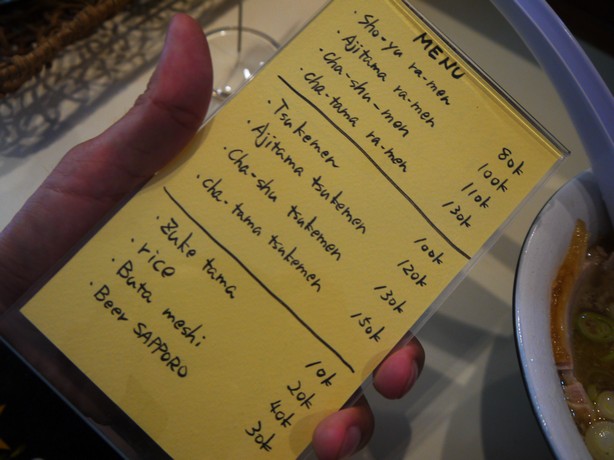 MENU
· Sho-yu ra-men 80k
· Ajitama ra-men 100k
· cha-shu-men 110k
· cha-tama ra-men 130k
· Tsukemen 100k
· Ajitama tsukemen 120k
· Cha-shu tsukemen 130k
· cha-tama tsukemen 150k
· Zuke tama 10k
· rice 20k
· Buta meshi 40k
· Beer SAPPORO 30k